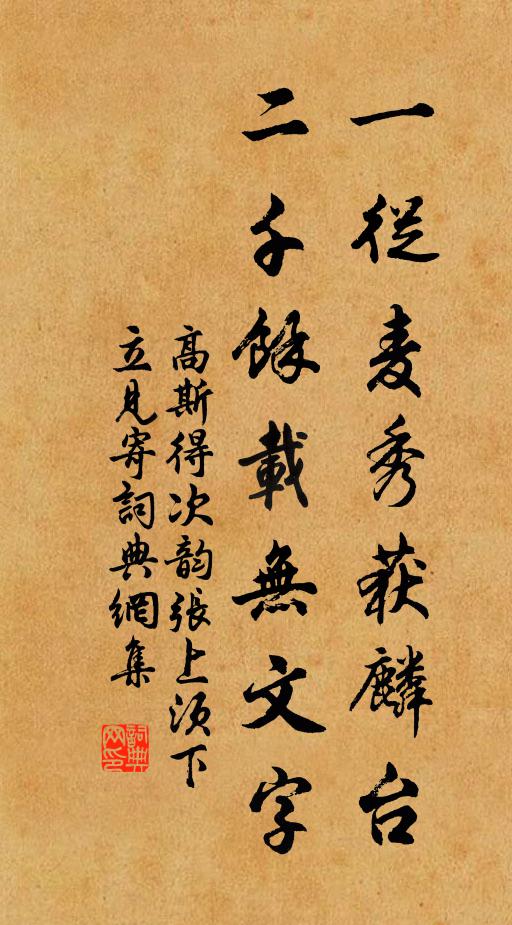 一從麦秀获麟台
二千餘載無文字
高斯得次韵張上须下
立見寄詞典網集
詞典网印